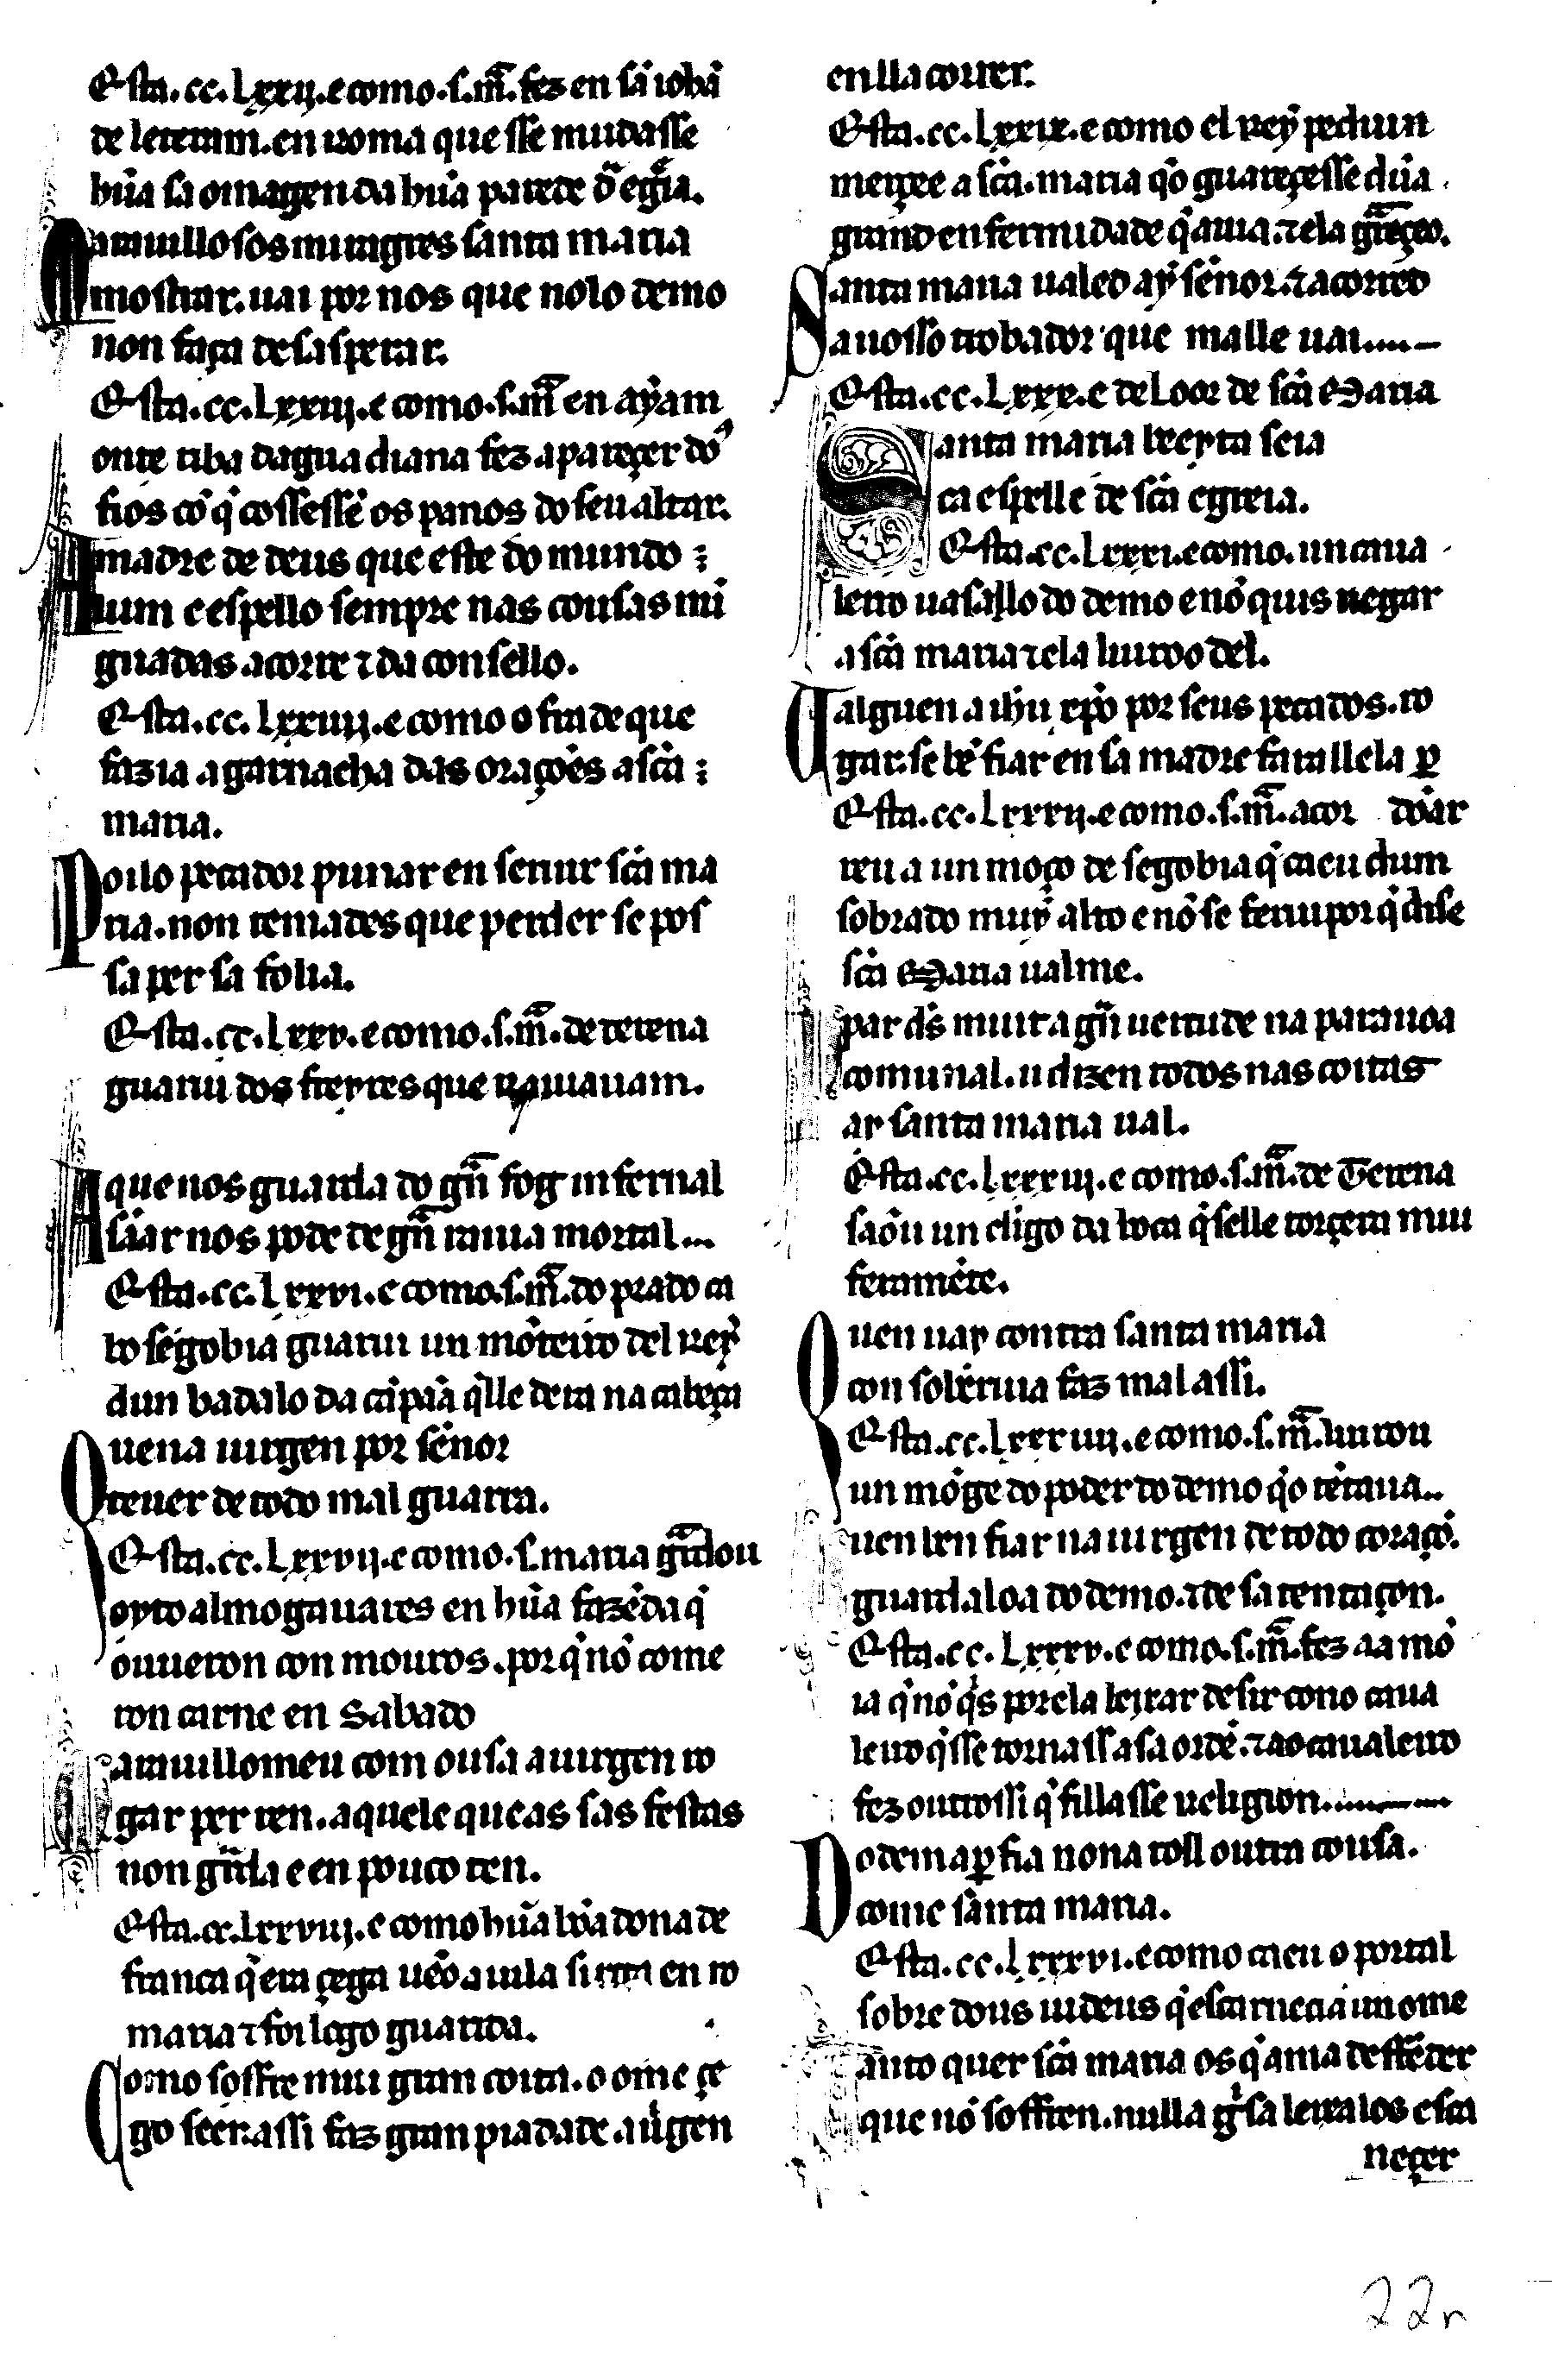 Esta .cc. Lxxij. e como .s. mã. fez en sã iohã
de leteram. en roma que sse mudasse
hũa sa omagen da hũa parede d̃ egr̃ia.
Marauillosos miragres santa maria
mostrar. uai por nos que nolo demo
non faça desasperar.
Esta .cc. Lxxiij. e como .s. mã en aẏam
onte riba dagua diana fez apareçer do9
fios cõ q̃ cossessẽ os panos do seu altar.
A madre de deus que este do mundo :
lum e espello sempre nas cousas mi
guadas acorre ⁊ da consello.
Esta .cc. Lxxiiij. e como o frade que
fazia a garnacha das oraçoẽs a scã :
maria.
Poilo pecador punar en seruir scã ma
ria. non temades que perder se pos
sa per sa folia.
Esta .cc. Lxxv. e como .s. mã. de terena
guariu dos freyres que rauiauam.
A que nos guarda do gñ fog infernal
sãar nos pode de gñ rauia mortal...
Esta .cc. Lxxvi. e como .s. mã. do prado ca
bo segobia guariu un mõteiro del reẏ
dun badalo da cãpaã q̃lle dera na cabeça
Quena uirgen por sẽnor
teuer de todo mal guarra.
Esta .cc. Lxxvij. e como .s. maria gũrdou
oyto almogauares en hũa fazẽda q̃
ouueron con mouros. por q̃ nõ come
ron carne en Sabado
Marauillomeu com ousa a uirgen ro
gar per ren. aquele que as sas festas
non gũrda e en pouco ten.
Esta .cc. Lxxviij. e como hũa bõa dona de
franca q̃ era çega uẽo a uila sirga en ro
maria ⁊ foi logo guarida.
Como soffre mui gran coita. o ome çe
go seer. assi faz gran piadade. a uirgen
enlla correr.
Esta .cc. Lxxix. e como el reẏ pediun
merçee a scã. maria q̃o guareçesse dũa
grand enfermidade q̃ auia. ⁊ ela gũreçeo.
Santa maria ualed aẏ sẽnor. ⁊ acorred
a uosso trobador que malle uai....
Esta .cc. Lxxx. e de Loor de scã Maria
Santa maria beeyta seia
ca espelle de scã egreia.
Esta .cc. Lxxxi. e como. un caua
leiro uasallo do demo e nõ quis negar
a scã maria ⁊ ela liuroo del.
Q alguen a ihũ xp̃o por seus pecados. ro
gar. se bẽ fiar en sa madre faralle la ꝑ
Esta .cc. Lxxxij. e como .s. mã. acor doar
reu a un moço de segobia q̃ caeu dum
sobrado muẏ alto e nõ se feriu por q̃ disse
scã Maria ualme.
Par ds̃ muit a gñ uertude na paraula
comunal. u dizen todos nas coitas
ar santa maria ual.
Esta .cc. Lxxxiij. e como .s. mã. de Terena
saõu un cligo da boca q̃ selle torçera mui
feramẽte.
Quen uay contra santa maria
con soberuia faz mal assi.
Esta .cc. Lxxxiiij. e como .s. mã. liurou
un mõge do poder do demo q̃o tẽtaua..
Quen ben fiar na uirgen de todo coraçõ.
guardaloa do demo. ⁊ de sa tentaçon.
Esta .cc. Lxxxv. e como .s. mã. fez aa mõ
ia q̃ nõ q̃s por ela leixar de sir cono caua
leiro q̃sse tornass a sa ordẽ. ⁊ ao caualeiro
fez outrossi q̃ fillasse religion.........
Do dem a ꝑfia nona toll outra cousa.
come santa maria.
Esta .cc. Lxxxvi. e como caeu o portal
sobre dous iudeus q̃ escarneciã un ome
Tanto quer scã maria os q̃ ama deffẽder
que nõ soffren. nulla gisa leixalos esca
neçer
22r